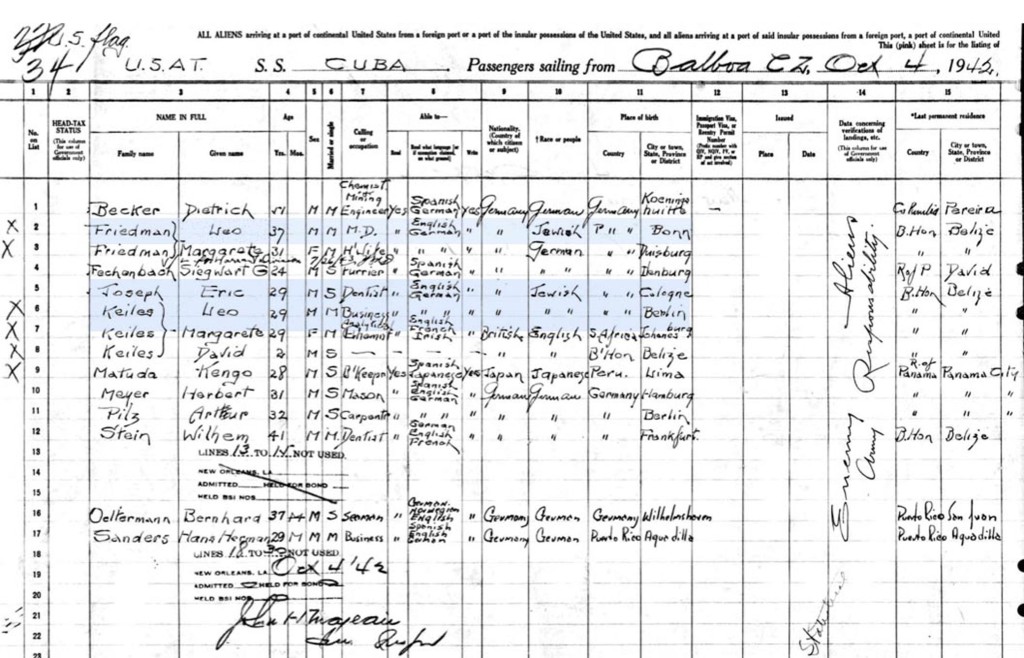 U.S. flag
ALL ALIENS arriving at a port of continental United States from a foreign port or a port of the insular possessions of the United States, and all aliens arriving at a port of said insular possessions from a foreign port, a port of continental United
This (pink) sheet is for the listing of
34 U.S.A.T. S. S. CUBA Passengers sailing from Balboa C.Z. Oct 4, 1942.
1 2 3 4 5 6 7 8 9 10 11 12 13 14 15
No. on List HEAD-TAX STATUS (This column for use of Government officials only) NAME IN FULL Family name Given name Age Yrs. Mos. Sex Married or single Calling or occupation Able to— Read Read what language Write Nationality (Country of which citizen or subject) †Race or people Place of birth Country City or town, State, Province or District Immigration Visa, Passport Visa, or Reentry Permit Number Issued Place Date Data concerning verifications of landings, etc. (This column for use of Government officials only) *Last permanent residence Country City or town, State, Province or District
1 Becker Dietrich M M Chemist Mining Engineer Yes Spanish German Yes Germany German Germany — Pereira
X 2 Friedman Leo 37 M M M.D. " English German " " Jewish " " Bonn B.Hon Belize
X 3 Friedman Margarete 31 F M H'wife " " " " " German " " Duisburg " "
4 Fechenbach Siegwart G 24 M S Furrier " Spanish German " " " " " " R of P David
5 Joseph Eric 29 M S Dentist " English German " " Jewish " " Cologne B.Hon Belize
X 6 Keiles Leo 29 M M Business " " " " " " " " Berlin " "
X 7 Keiles Margarete 29 F M Analytical Chemist " English French Irish " British English S.Africa Johanesburg " "
X 8 Keiles David 2 M S — — — — " " B'Hon Belize " "
X 9 Matuda Kengo 28 M S B'Keeper Yes Spanish Japanese Yes Japan Japanese Peru. Lima R. of Panama Panama City
10 Meyer Herbert 31 M S Mason " Spanish English German " German German Germany Hamburg " "
11 Pilz Arthur 32 M S Carpentr " " " " " " " Berlin " "
12 Stein Wilhem 41 M M Dentist " German English French " " " " Frankfurt. B.Hon Belize
13 LINES 13 TO 14 NOT USED
14 NEW ORLEANS, LA.
ADMITTED HELD FOR BOND
15 HELD BSI NOS
16 Oeltermann Bernhard 37 M S Seaman " German Norwegian English " Germany German Germany Wilhelmshavn Puerto Rico San Juan
17 Sanders Hans Herman 29 M M Business " Spanish English German " Germany German Puerto Rico Aguadilla Puerto Rico Aguadilla
18 LINES 18 TO 30 NOT USED
19 NEW ORLEANS, LA. Oct 4 '42
ADMITTED HELD FOR BOND
20 HELD BSI NOS
21
22
Enemy Aliens
Army Responsability.